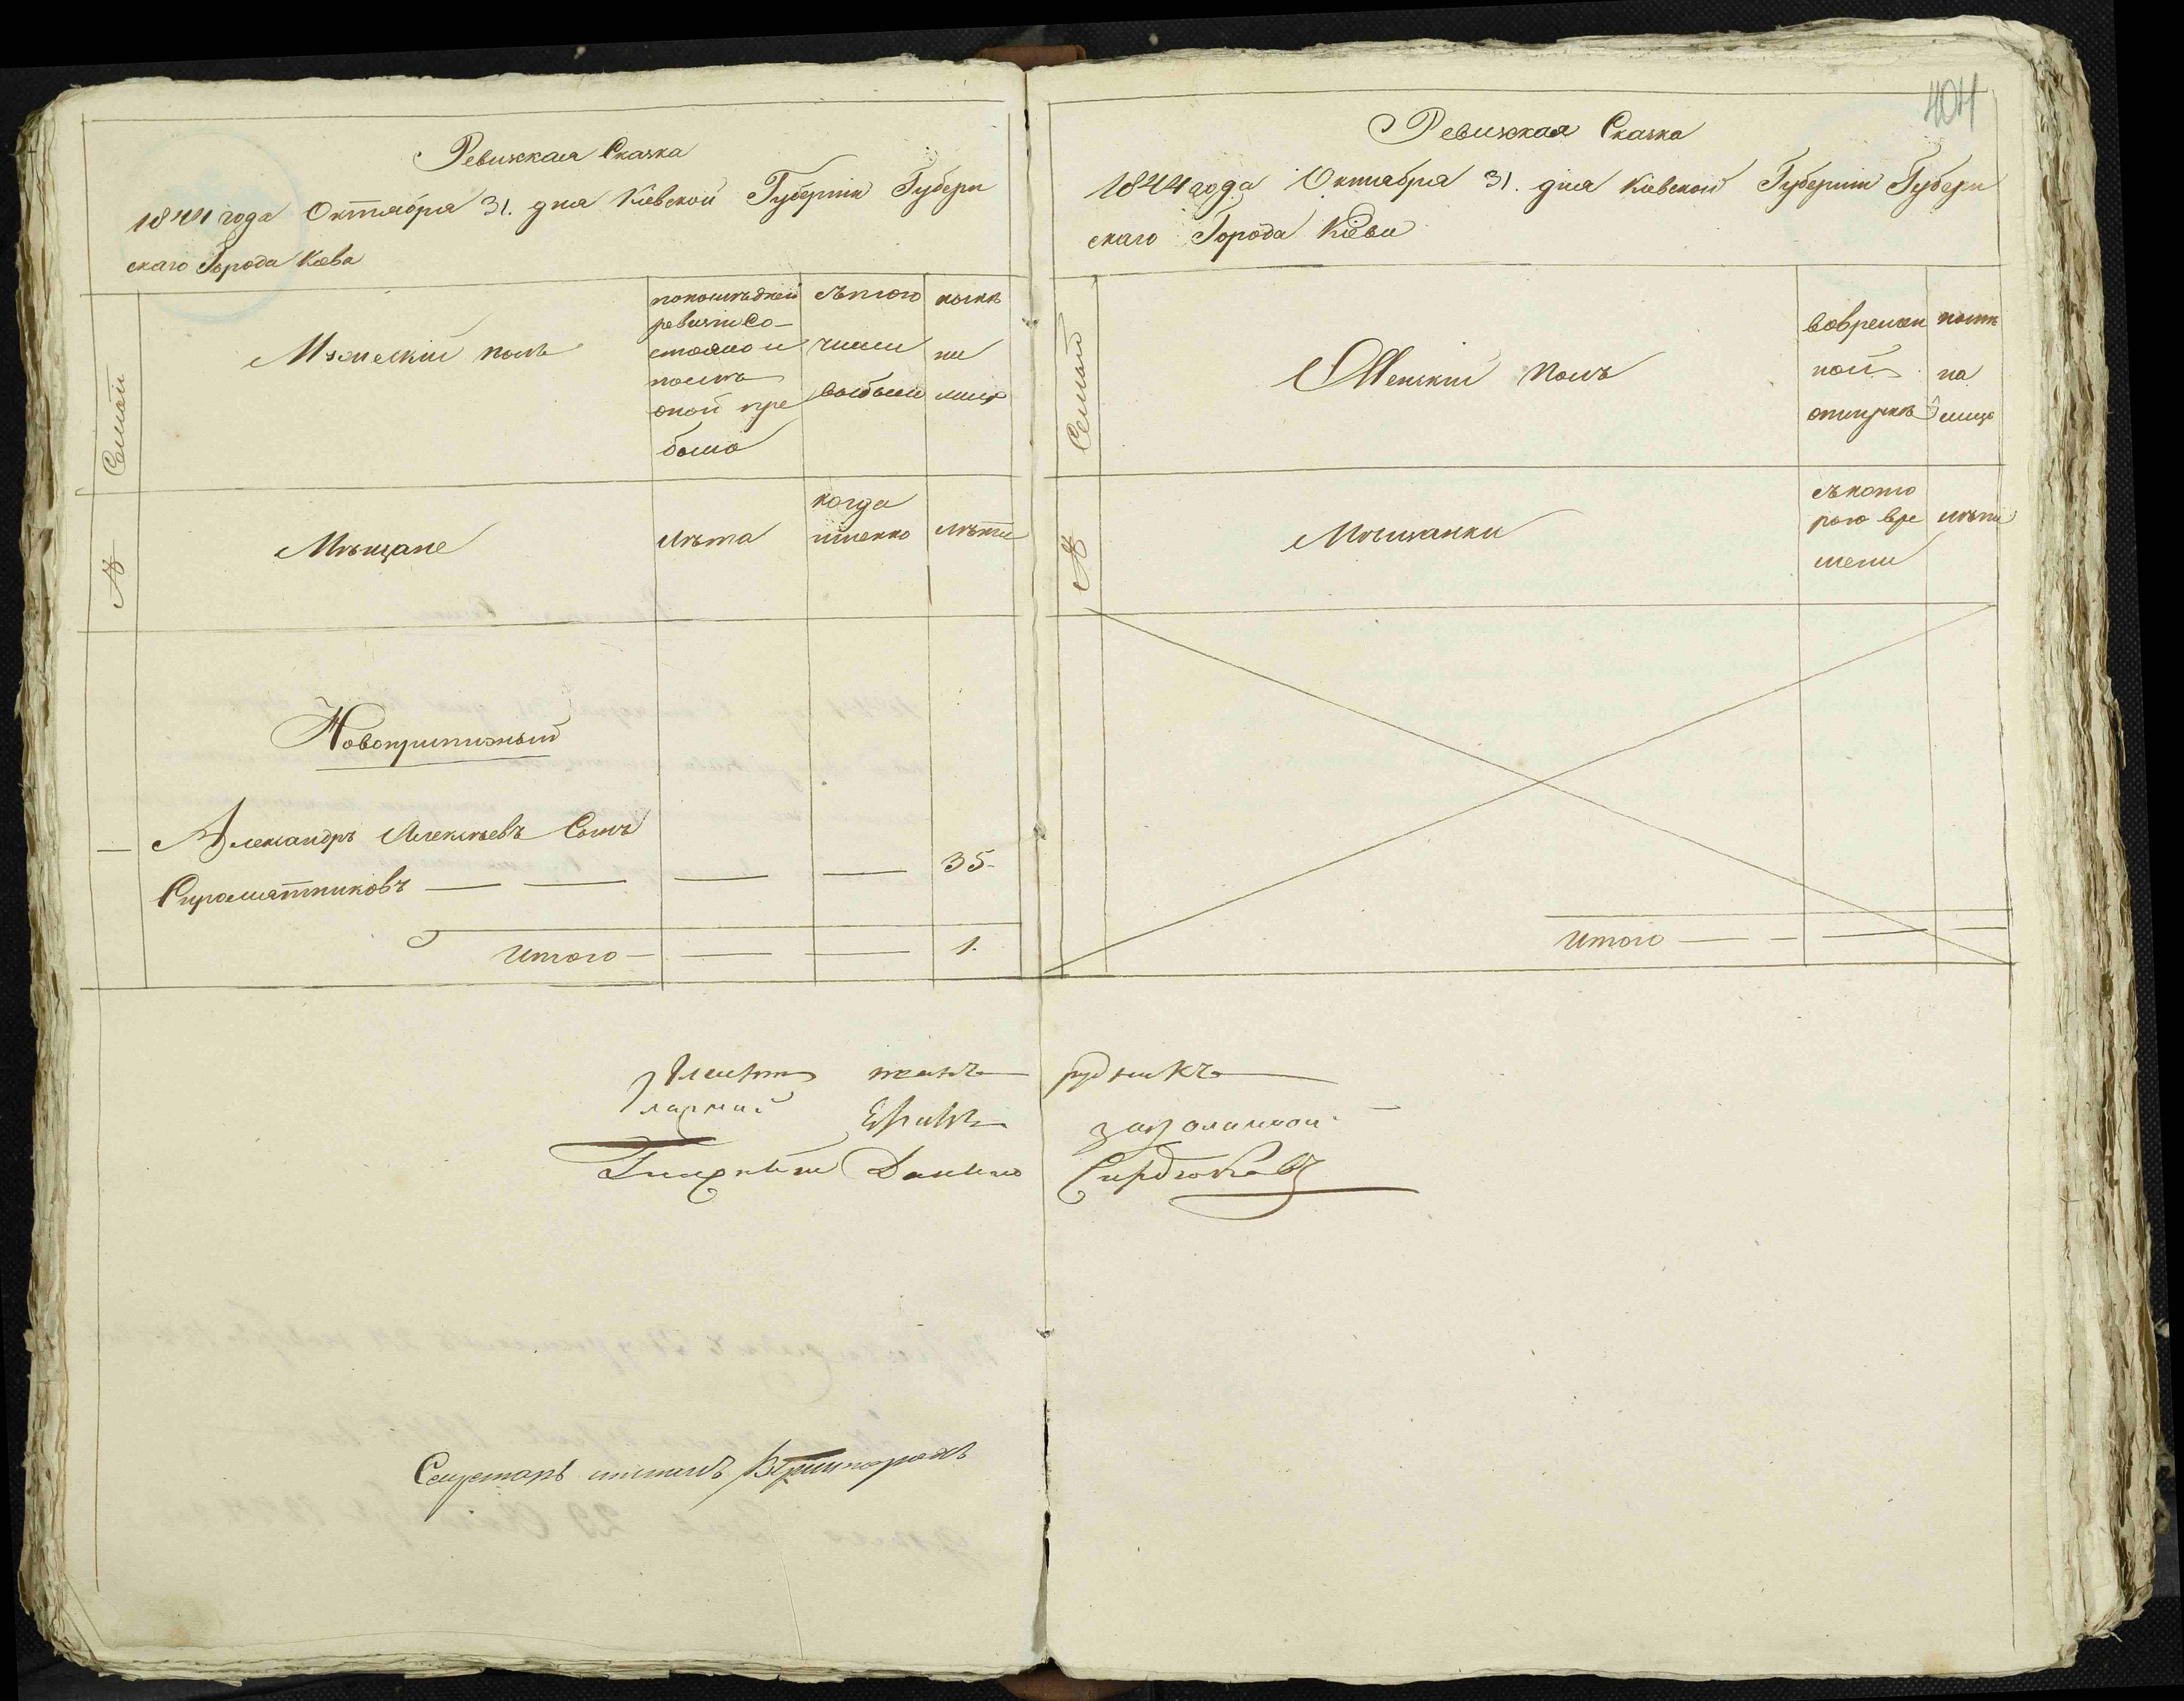 Ревижская Сказка
1844 года Октября 31. дня Кіевской Губерніи Губерн
скаго Города Кіева
№ Семей
Мужескій полъ
попослѣдней
ревизіи Со-
стояло и
послѣ
оной при
было
съ того
числа
выбыло
нынѣ
на
лицо
Мѣщане
лѣта
когда
именно
лѣта
Новоприписный
Александръ Алексѣевъ Сынъ
Сыромятниковъ 35
Итого 1.
404
Ревижская Сказка
1844 года Октября 31. дня Кіевской Губерніи Губерн
скаго Города Кіева
№ Семей
Женскій полъ
вовремен
ной
отлучкѣ
нынѣ
на
лицо
Мѣщанки
съкото
рого вре
мени
лѣта
Итого
рудникъ
Гласный
Гласный Данило Сердюковъ
Секретарь